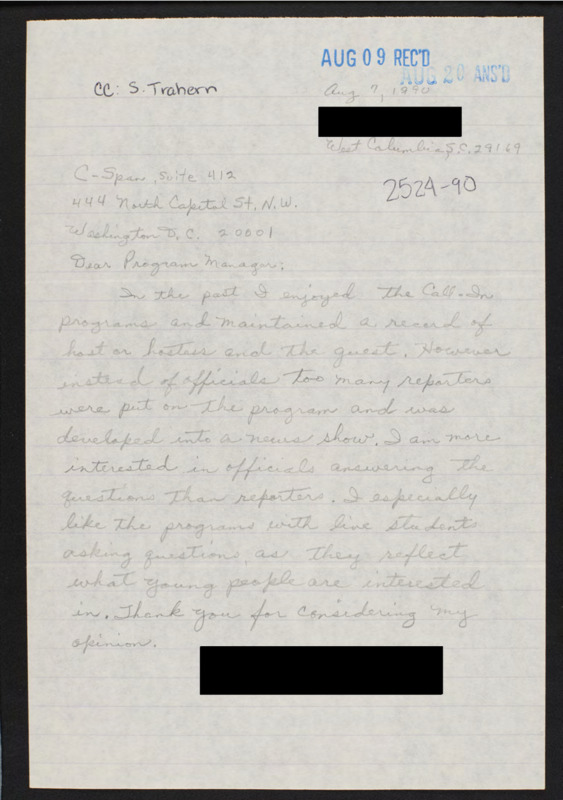 AUG 09 REC'D
AUG 20 ANS'D
CC: S. Trahern
Aug 7, 1990
West Columbia, S.C. 29169
C-Span, Suite 412
2524-90
444 North Capitol St, N.W.
Washington D.C. 20001
Dear Program Manager:
In the past I enjoyed the Call-In
programs and maintained a record of
host or hostess and the guest. However
instead of officials too many reporters
were put on the program and was
developed into a news show. I am more
interested in officials answering the
questions than reporters. I especially
like the programs with live student
asking questions, as they reflect
what young people are interested
in. Thank you for considering my
opinion.